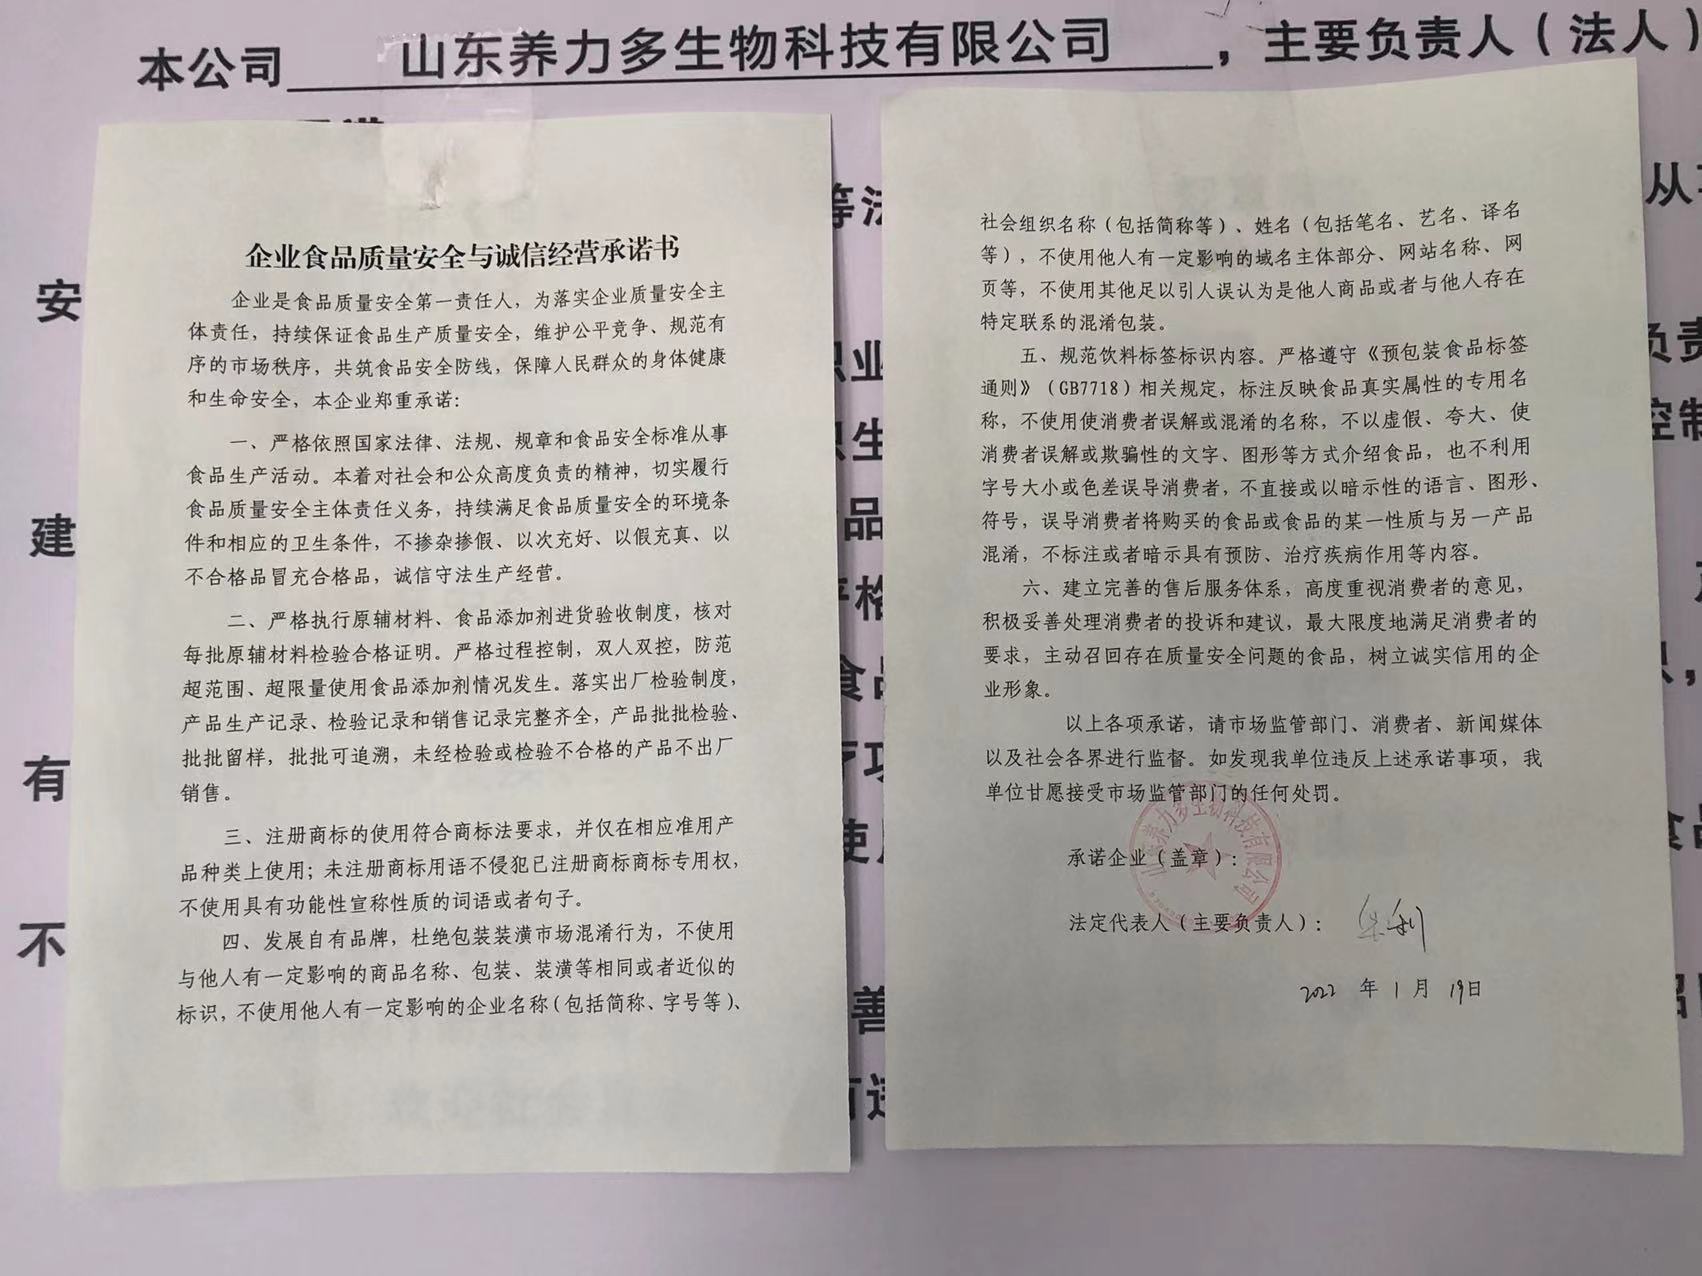 本公司 山东养力多生物科技有限公司 ，主要负责人（法人）
企业食品质量安全与诚信经营承诺书
企业是食品质量安全第一责任人，为落实企业质量安全主
体责任，持续保证食品生产质量安全，维护公平竞争、规范有
序的市场秩序，共筑食品安全防线，保障人民群众的身体健康
和生命安全，本企业郑重承诺：
一、严格依照国家法律、法规、规章和食品安全标准从事
食品生产活动。本着对社会和公众高度负责的精神，切实履行
食品质量安全主体责任义务，持续满足食品质量安全的环境条
件和相应的卫生条件，不掺杂掺假、以次充好、以假充真、以
不合格品冒充合格品，诚信守法生产经营。
二、严格执行原辅材料、食品添加剂进货验收制度，核对
每批原辅材料检验合格证明。严格过程控制，双人双控，防范
超范围、超限量使用食品添加剂情况发生。落实出厂检验制度，
产品生产记录、检验记录和销售记录完整齐全，产品批批检验、
批批留样，批批可追溯，未经检验或检验不合格的产品不出厂
销售。
三、注册商标的使用符合商标法要求，并仅在相应准用产
品种类上使用；未注册商标用语不侵犯已注册商标商标专用权，
不使用具有功能性宣称性质的词语或者句子。
四、发展自有品牌，杜绝包装装潢市场混淆行为，不使用
与他人有一定影响的商品名称、包装、装潢等相同或者近似的
标识，不使用他人有一定影响的企业名称（包括简称、字号等）、
社会组织名称（包括简称等）、姓名（包括笔名、艺名、译名
等），不使用他人有一定影响的域名主体部分、网站名称、网
页等，不使用其他足以引人误认为是他人商品或者与他人存在
特定联系的混淆包装。
五、规范饮料标签标识内容。严格遵守《预包装食品标签
通则》（GB7718）相关规定，标注反映食品真实属性的专用名
称，不使用使消费者误解或混淆的名称，不以虚假、夸大、使
消费者误解或欺骗性的文字、图形等方式介绍食品，也不利用
字号大小或色差误导消费者，不直接或以暗示性的语言、图形、
符号，误导消费者将购买的食品或食品的某一性质与另一产品
混淆，不标注或者暗示具有预防、治疗疾病作用等内容。
六、建立完善的售后服务体系，高度重视消费者的意见，
积极妥善处理消费者的投诉和建议，最大限度地满足消费者的
要求，主动召回存在质量安全问题的食品，树立诚实信用的企
业形象。
以上各项承诺，请市场监管部门、消费者、新闻媒体
以及社会各界进行监督。如发现我单位违反上述承诺事项，我
单位甘愿接受市场监管部门的任何处罚。
山东养力多生物科技有限公司
承诺企业（盖章）：
法定代表人（主要负责人）：
2022 年 1 月 19日
安
建
有
不
等
职业
织生
品
严格
食品
疗功
使用
善
有违
从事
负责
控制